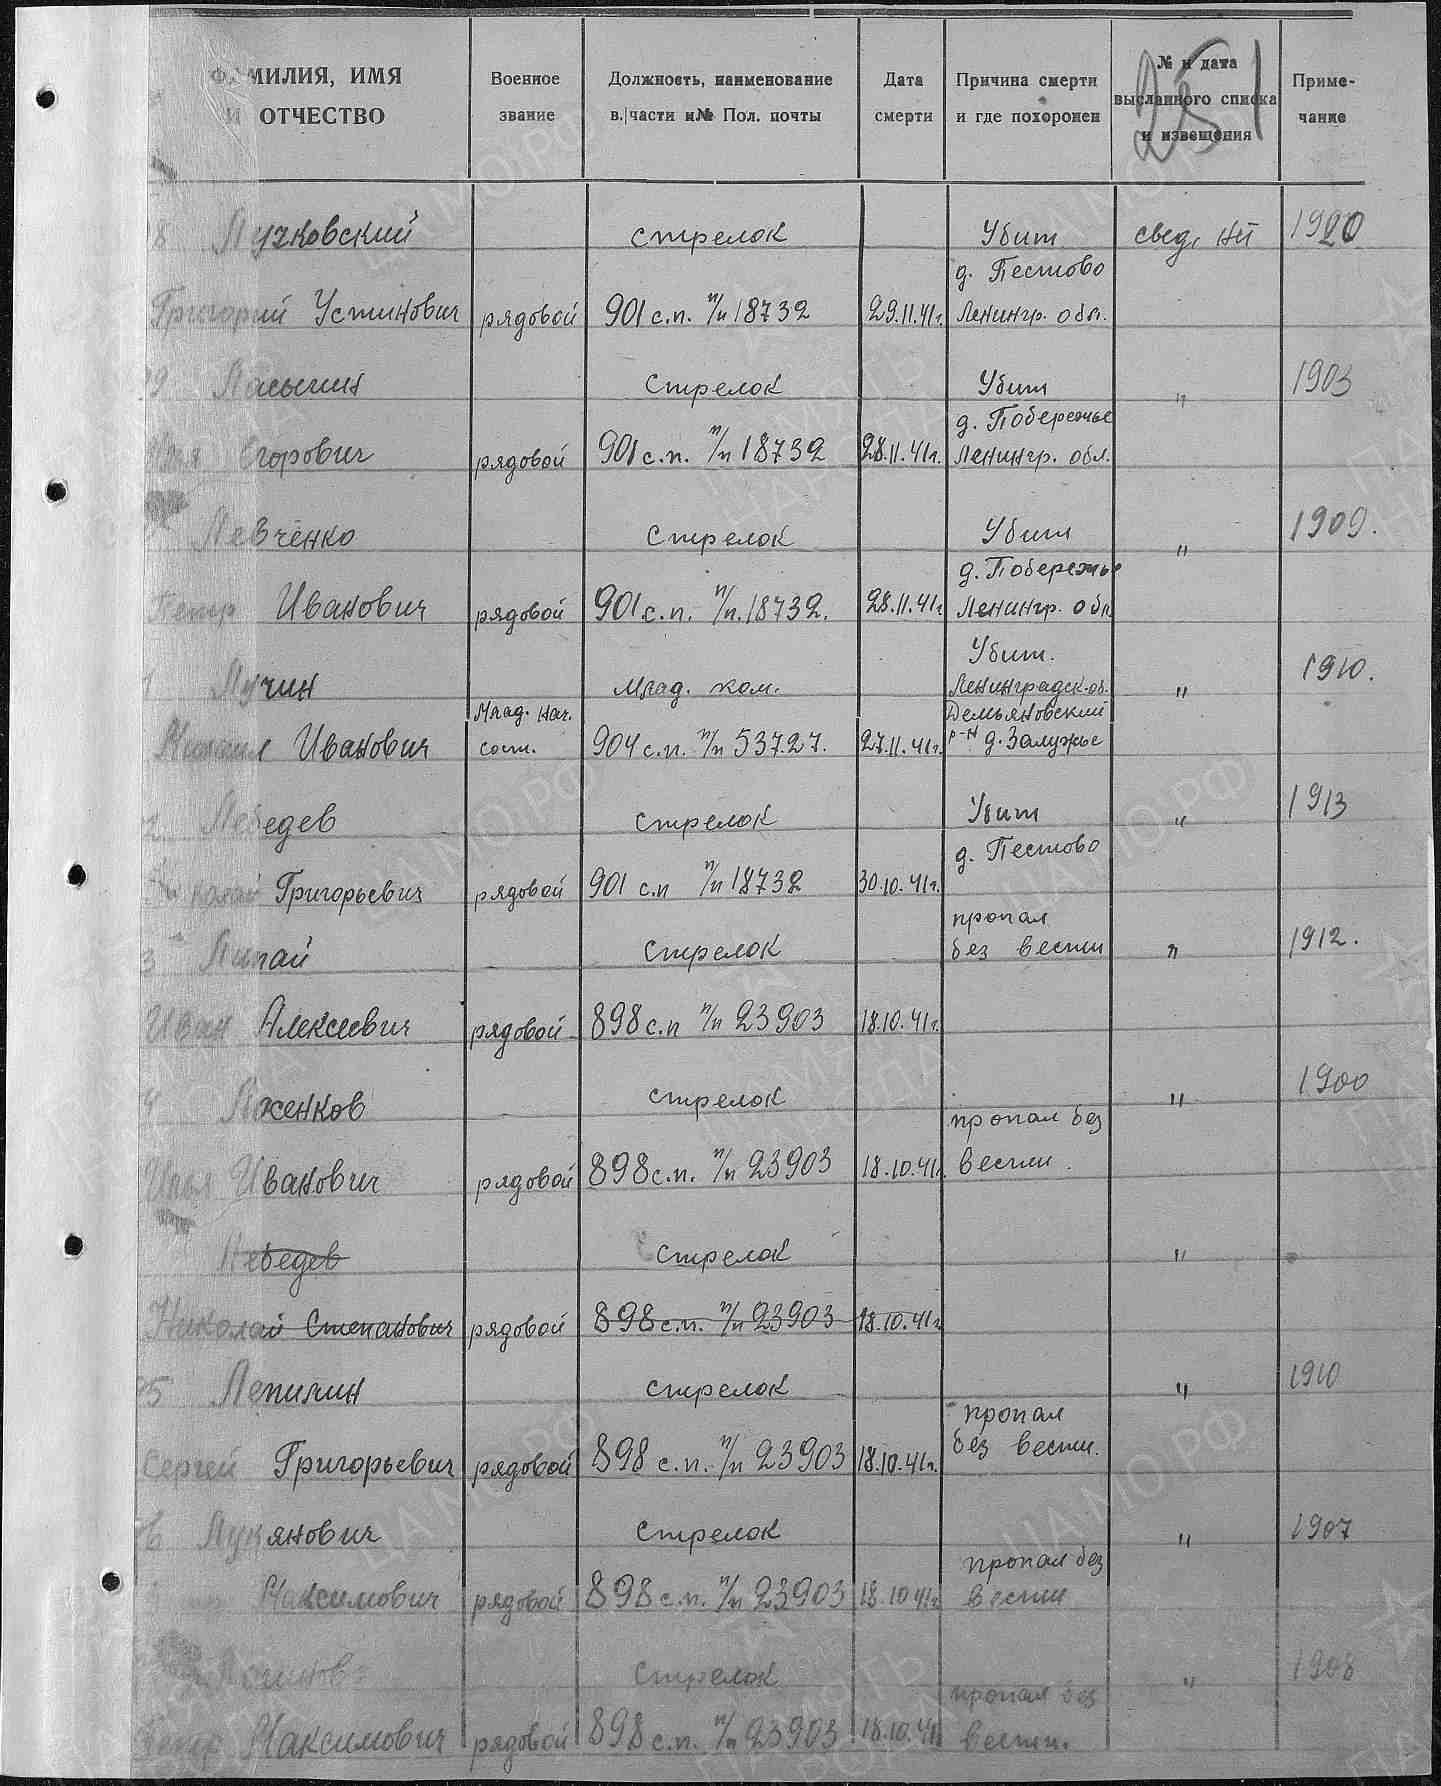 ФАМИЛИЯ, ИМЯ И ОТЧЕСТВО
Военное звание
Должность, наименование в./части и № Пол. почты
Дата смерти
Причина смерти и где похоронен
№ и дата высланного списка и извещения
Приме-чание
251
Лучковский стрелок Убит свед. нет 1920
д. Пестово
Григорий Устинович рядовой 901 с.п. п/п 18732 29.11.41г. Ленингр. обл.
Стрелок Убит " 1903
д. Побережье
Егорович рядовой 901 с.п. п/п 18732 28.11.41г. Ленингр. обл.
Левченко Стрелок Убит " 1909.
д. Побережье
Петр Иванович рядовой 901 с.п. п/п. 18732. 28.11.41г Ленингр. обл
Убит.
Лучин Млад. ком. Ленинградск. об. " 1910.
Млад. нач. Демьяновский
Иванович сост. 904 с.п. п/п 53727. 27.11.41г. р-н д. Залужье
2 Лебедев стрелок Убит " 1913
д. Пестово
Николай Григорьевич рядовой 901 с.п п/п 18732 30.10.41г.
пропал
3 Липай стрелок без вести " 1912.
Иван Алексеевич рядовой 898 с.п п/п 23903 18.10.41г.
Ложенков стрелок " 1900
пропал без
Илья Иванович рядовой 898 с.п. п/п 23903 18.10.41г. вести.
Лебедев стрелок "
Николай Степанович рядовой 898 с.п. п/п 23903 18.10.41г
95 Лепилин стрелок " 1910
пропал
Сергей Григорьевич рядовой 898 с.п. п/п 23903 18.10.41г. без вести.
6 Лукянович стрелок " 1907
пропал без
Максимович рядовой 898 с.п. п/п 23903 18.10.41г вести
стрелок " 1908
пропал без
Петр Максимович рядовой 898 с.п. п/п 23903 18.10.41 вести.